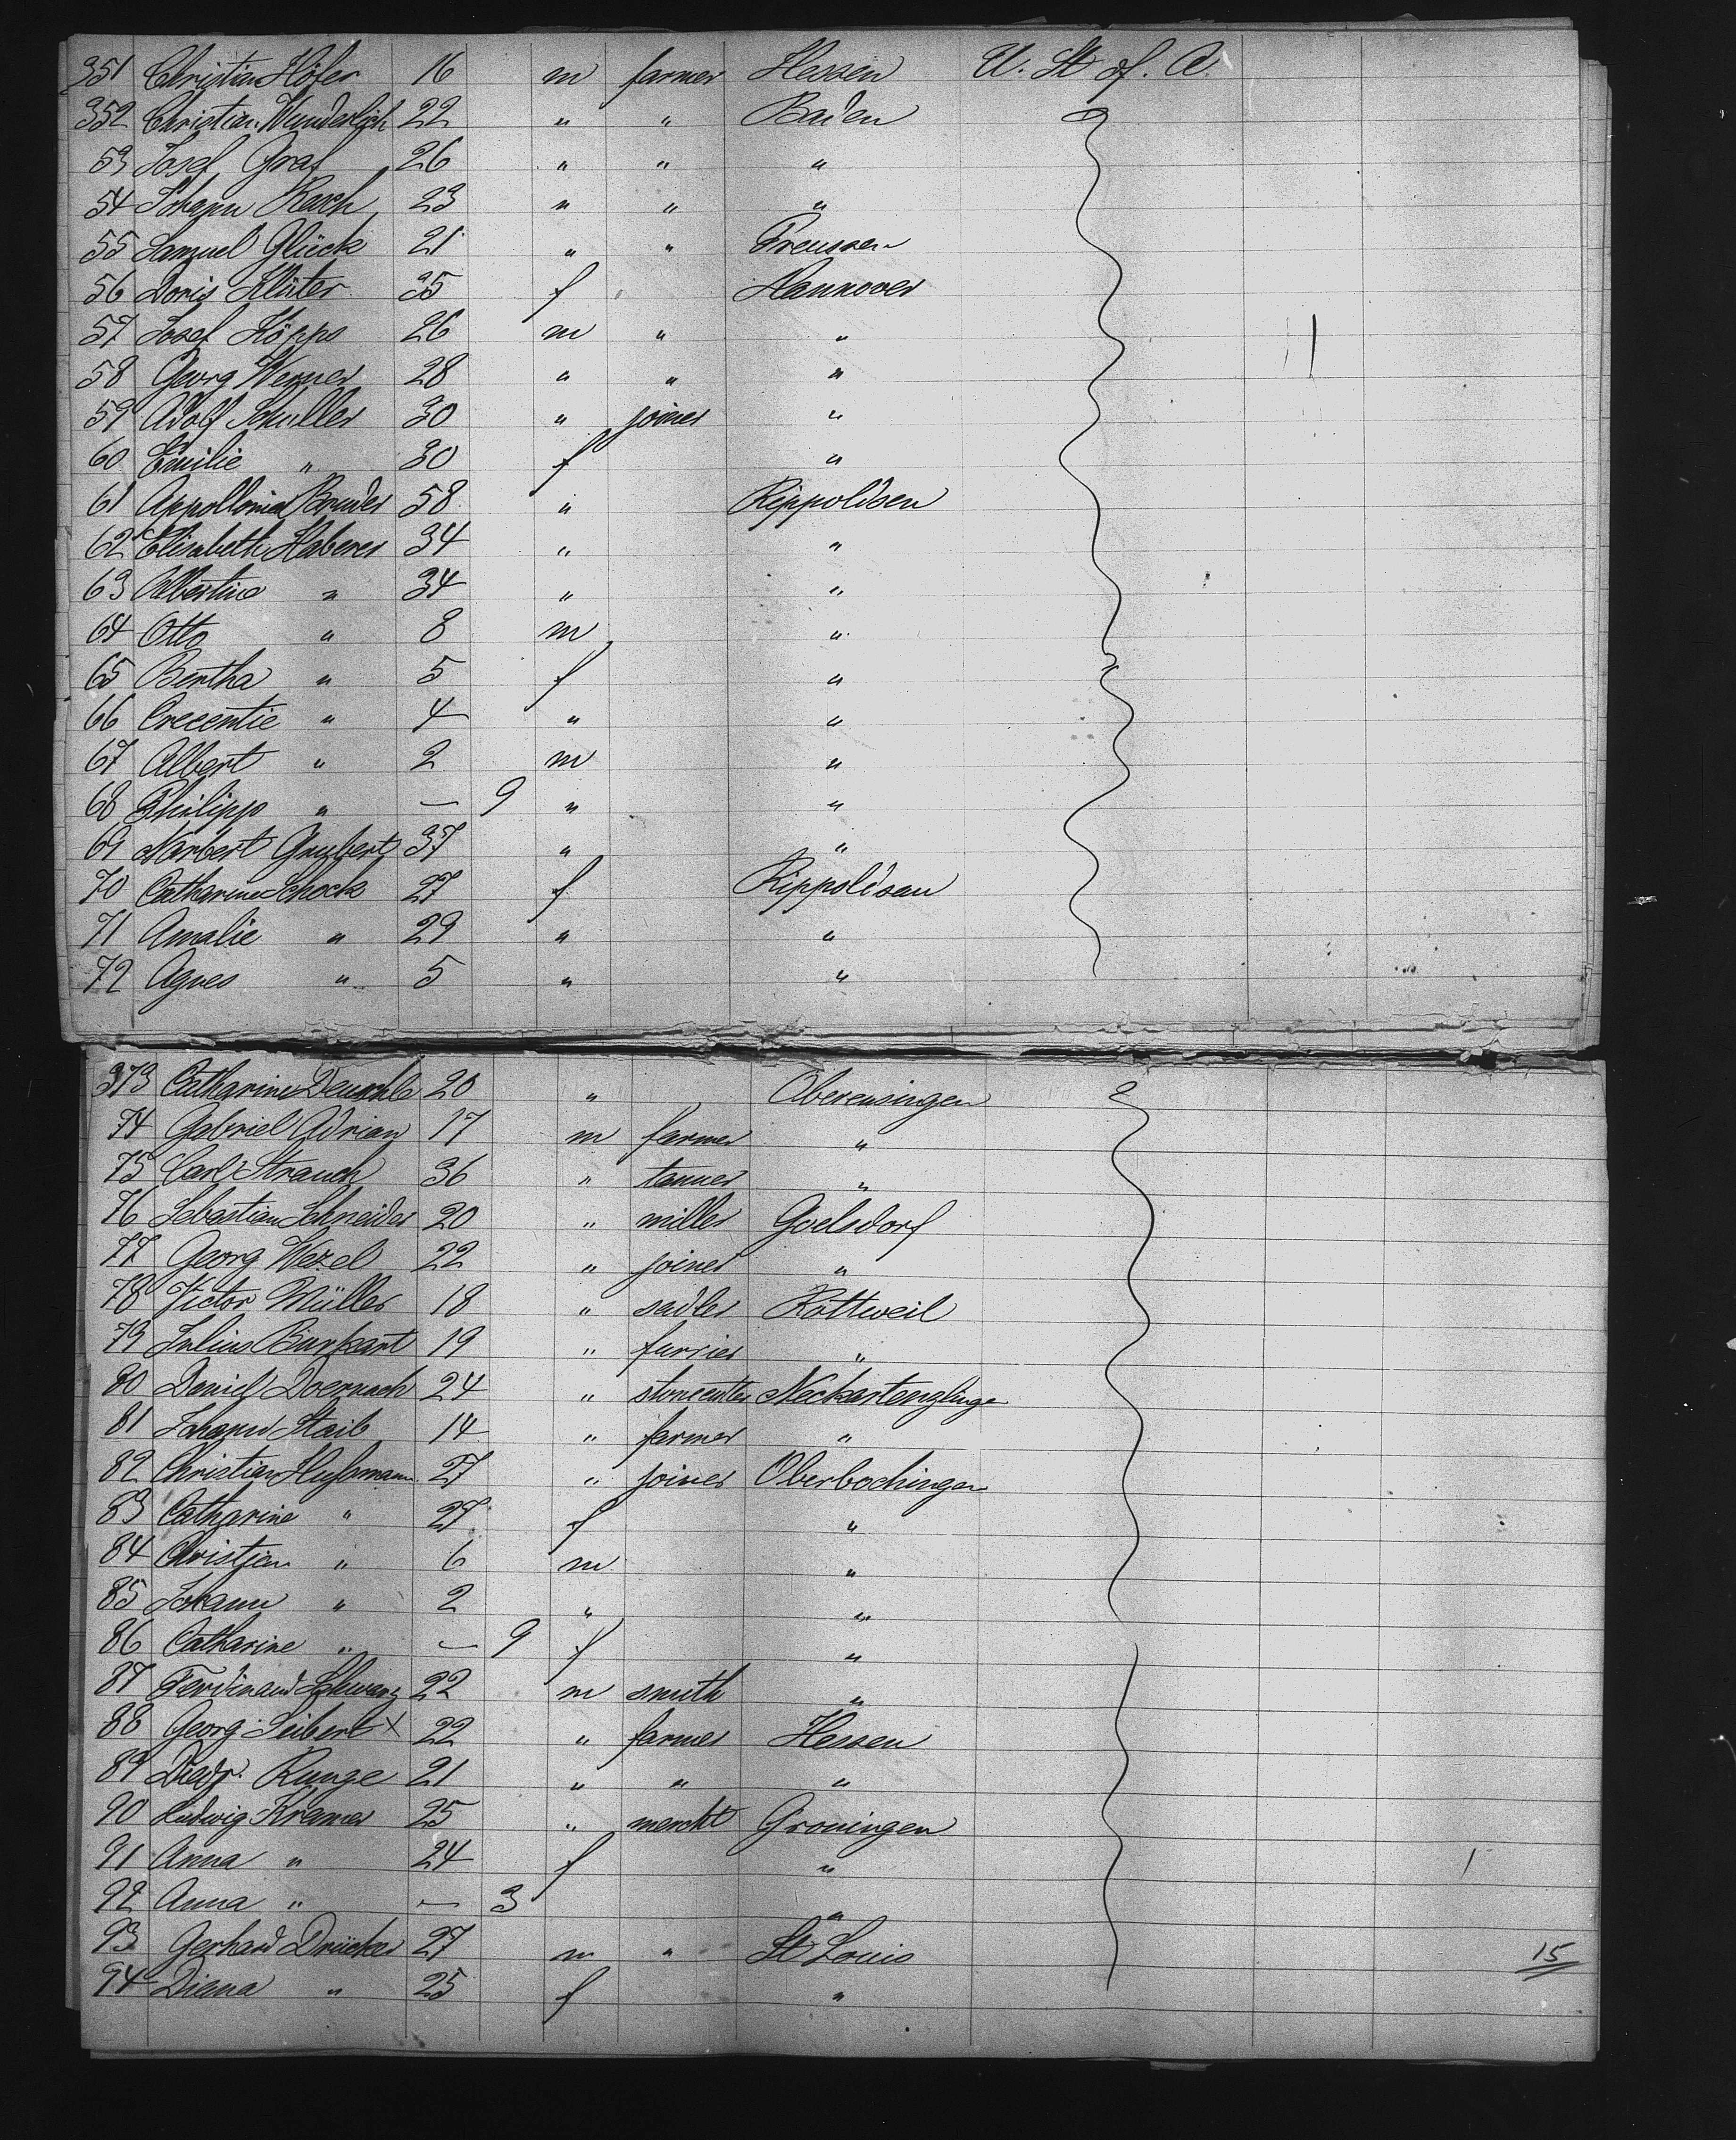 351 Christian Höfer 16 m farmer Hessen U. St of. A.
352 Christian Wunderlich 22 " " Baden
53 Josef Graf 26 " " "
54 Johann Rasch 23 " " "
55 Samuel Glück 21 " " Preussen
56 Doris Klüter 35 f Hannover
57 Josef Köpps 26 m " "
58 Georg Werner 28 " " "
59 Adolf Schuller 30 " joiner "
60 Emilie " 30 f "
61 Appollonia Bruder 58 " Rippoldsen
62 Elisabeth Haberer 34 " "
63 Albertine " 34 " "
64 Otto " 8 m "
65 Bertha " 5 f "
66 Crecentie " 4 " "
67 Albert " 2 m "
68 Philipp " — 9 " "
69 Narbert Grubert 37 " "
70 Catharine Schock 27 f Rippoldsau
71 Amalie " 29 " "
72 Agnes " 5 " "
373 Catharine Deuschle 20 " Oberensingen
74 Gabriel Adrian 17 m farmer "
75 Carl Strauch 36 " tanner "
76 Sebastian Schneider 20 " miller Goelsdorf
77 Georg Wezel 22 " joiner "
78 Victor Müller 18 " sadler Rottweil
79 Julius Burkart 19 " furrier "
80 Daniel Doernach 24 " stonecutter Neckartenzlinge
81 Johann Staib 14 " farmer "
82 Christian Hußmann 27 " joiner Oberbochingen
83 Catharine " 27 f "
84 Christian " 6 m "
85 Johann " 2 " "
86 Catharine " — 9 f "
87 Ferdinand Schwarz 22 m smith "
88 Georg Seibert x 22 " farmer Hessen
89 Diedr. Runge 21 " " "
90 Ludwig Kramer 25 " mercht Groningen
91 Anna " 24 f "
92 Anna " — 3 "
93 Gerhard Drücker 27 m " St Louis 15
94 Diena " 25 f "